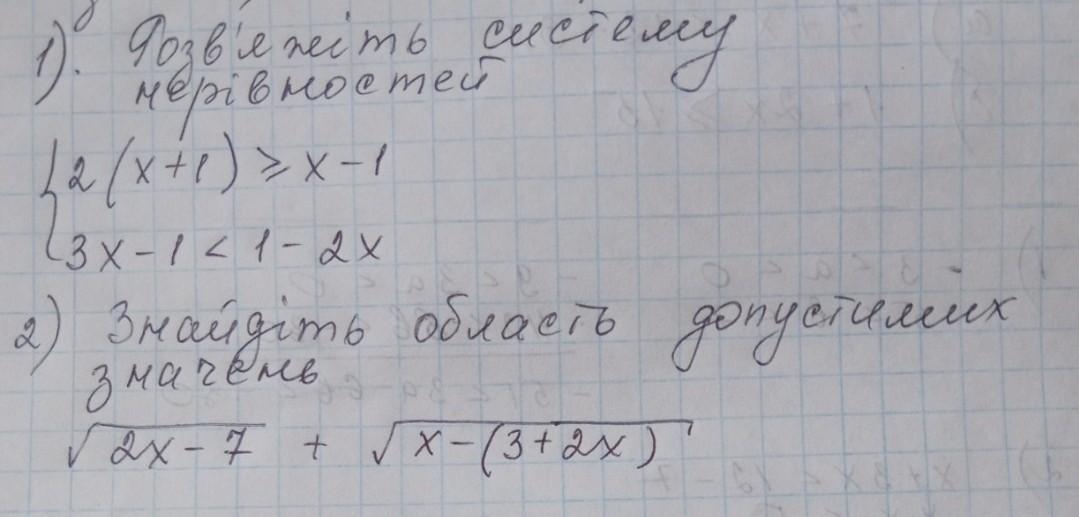 1). Розв'яжіть систему
нерівностей
2(x+1) ⩾ x-1
3x-1 < 1-2x
2) Знайдіть область допустимих
значень
√2x-7 + √x-(3+2x)